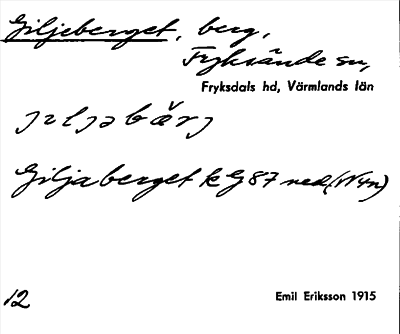 Giljeberget, berg,
Fryksände sn,
Fryksdals hd, Värmlands län
Giljaberget k G87 ned
12
Emil Eriksson 1915